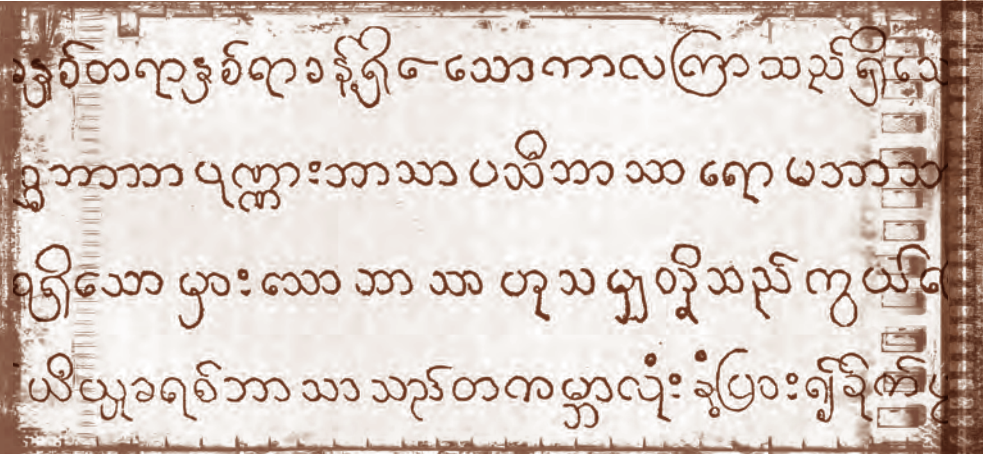 နှစ်တရာနှစ်ရာခန့်ရှိ သောကာလကြာသည်ရှိသေ
ဘာသာ ပုဏ္ဏားဘာသာ ပသီဘာသာ ရော မဘာသာ
ရှိသော မှားသော ဘာသာ ဟုသမျှတို့သည် ကွယ်
ယိယှုခရစ်ဘာသာသည်တကမ္ဘာလုံး နှံ့ပြား၍